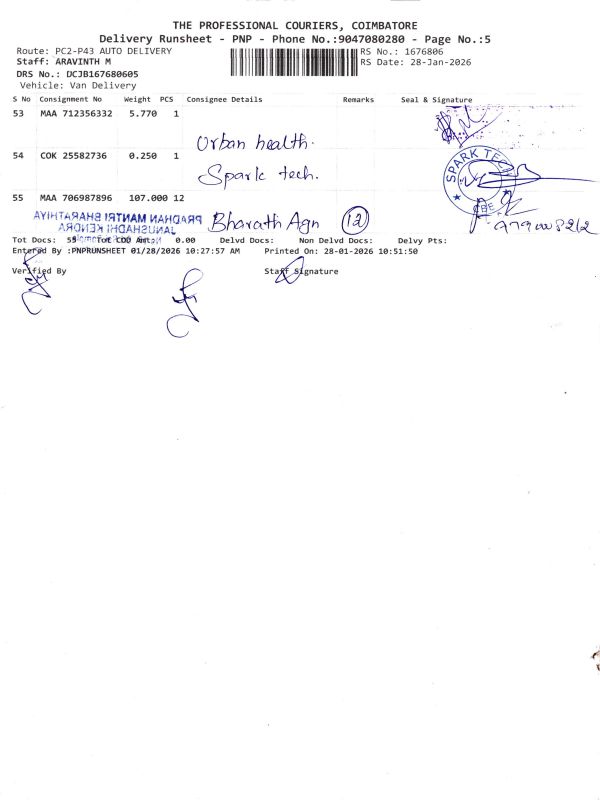 THE PROFESSIONAL COURIERS, COIMBATORE
Delivery Runsheet - PNP - Phone No.:9047080280 - Page No.:5
Route: PC2-P43 AUTO DELIVERY
RS No.: 1676806
Staff: ARAVINTH M
RS Date: 28-Jan-2026
DRS No.: DCJB167680605
Vehicle: Van Delivery
S No Consignment No Weight PCS Consignee Details Remarks Seal & Signature
53 MAA 712356332 5.770 1
Urban health.
54 COK 25582736 0.250 1
Spark tech.
SPARK TECH
CBE
55 MAA 706987896 107.000 12
Bharath Agn 12
PRADHAN MANTRI BHARATHIYA
JANUSHADHI KENDRA
Tot Docs: 55 Tot COD Amt: 0.00 Delvd Docs: Non Delvd Docs: Delvy Pts:
Entered By :PNPRUNSHEET 01/28/2026 10:27:57 AM Printed On: 28-01-2026 10:51:50
Verified By Staff Signature